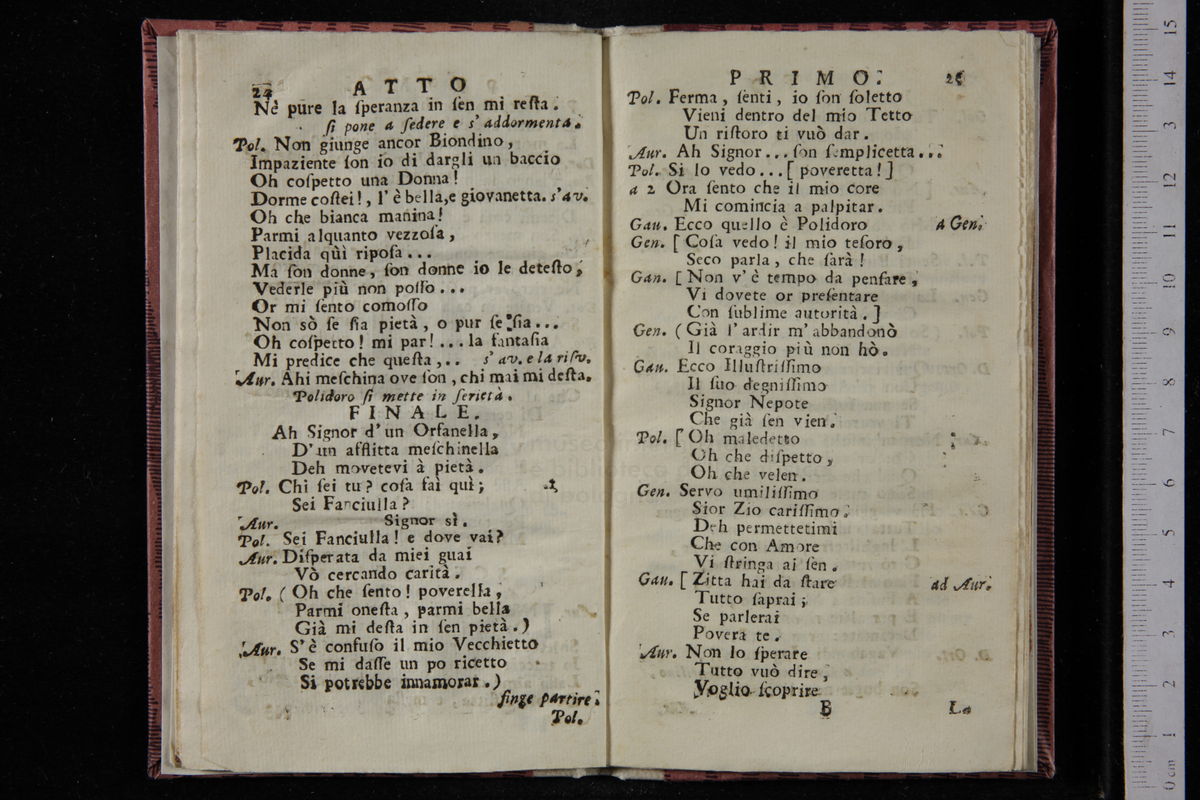 24 ATTO
Nè pure la ſperanza in ſen mi reſta.
ſi pone a ſedere e s'addormenta.
Pol. Non giunge ancor Biondino,
Impaziente ſon io di dargli un baccio
Oh coſpetto una Donna!
Dorme coſtei!, l'è bella,e giovanetta. s'av.
Oh che bianca manina!
Parmi alquanto vezzoſa,
Placida quì ripoſa...
Ma ſon donne, ſon donne io le deteſto,
Vederle più non poſſo...
Or mi ſento comoſſo
Non sò ſe ſia pietà, o pur ſe ſia...
Oh coſpetto! mi par!...la fantaſia
Mi predice che queſta,.. s'av. e la riſv.
Aur. Ahi meſchina ove ſon, chi mai mi deſta.
Polidoro ſi mette in ſerietà.
FINALE.
Ah Signor d'un Orfanella,
D'un afflitta meſchinella
Deh movetevi à pietà.
Pol. Chi ſei tu? coſa fai quì;
Sei Fanciulla?
Aur. Signor sì.
Pol. Sei Fanciulla! e dove vai?
Aur. Diſperata da miei guai
Vò cercando carità.
Pol. (Oh che ſento! poverella,
Parmi oneſta, parmi bella
Già mi deſta in ſen pietà.)
Aur. S'è confuſo il mio Vecchietto
Se mi daſſe un po ricetto
Si potrebbe innamorar.)
finge partire.
Pol.
PRIMO. 25
Pol. Ferma, ſenti, io ſon ſoletto
Vieni dentro del mio Tetto
Un riſtoro ti vuò dar.
Aur. Ah Signor...ſon ſemplicetta...
Pol. Si lo vedo...[poveretta!]
a 2 Ora ſento che il mio core
Mi comincia a palpitar.
Gau. Ecco quello è Polidoro a Gen.
Gen. [Coſa vedo! il mio teſoro,
Seco parla, che ſarà!
Gau. [Non v'è tempo da penſare,
Vi dovete or preſentare
Con ſublime autorità.]
Gen. (Già l'ardir m'abbandonò
Il coraggio più non hò.
Gau. Ecco Illuſtriſſimo
Il ſuo degniſſimo
Signor Nepote
Che già ſen vien.
Pol. [Oh maledetto
Oh che diſpetto,
Oh che velen.
Gen. Servo umiliſſimo
Sior Zio cariſſimo.
Deh permettetimi
Che con Amore
Vi ſtringa ai ſen.
Gau. [Zitta hai da ſtare ad Aur.
Tutto ſaprai;
Se parlerai
Povera te.
Aur. Non lo ſperare
Tutto vuò dire,
Voglio ſcoprire
B La